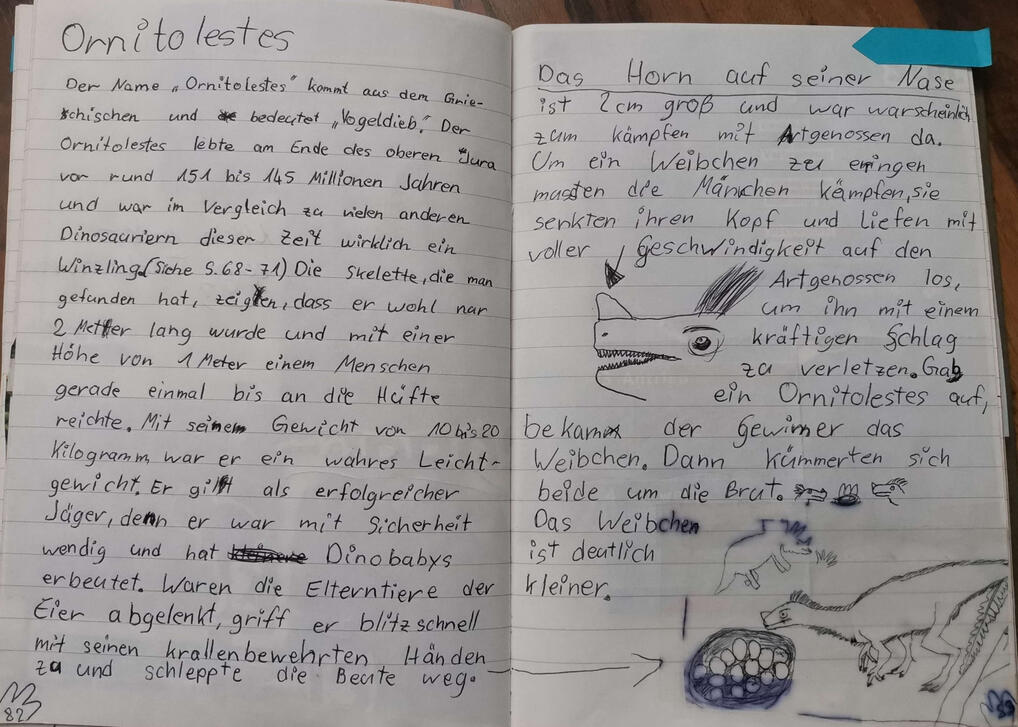 Ornitolestes
Der Name „Ornitolestes" kommt aus dem Grie-
chischen und bedeutet „Vogeldieb". Der
Ornitolestes lebte am Ende des oberen Jura
vor rund 151 bis 145 Millionen Jahren
und war im Vergleich zu vielen anderen
Dinosauriern dieser Zeit wirklich ein
Winzling. (Siehe S. 68-71) Die Skelette, die man
gefunden hat, zeigen, dass er wohl nur
2 Meter lang wurde und mit einer
Höhe von 1 Meter einem Menschen
gerade einmal bis an die Hüfte
reichte. Mit seinem Gewicht von 10 bis 20
Kilogramm war er ein wahres Leicht-
gewicht. Er gilt als erfolgreicher
Jäger, denn er war mit Sicherheit
wendig und hat Dinobabys
erbeutet. Waren die Elterntiere der
Eier abgelenkt, griff er blitzschnell
mit seinen krallenbewehrten Händen
zu und schleppte die Beute weg.
82
Das Horn auf seiner Nase
ist 2cm groß und war warscheinlich
zum kämpfen mit Artgenossen da.
Um ein Weibchen zu eringen
mussten die Mänchen kämpfen, sie
senkten ihren Kopf und liefen mit
voller Geschwindigkeit auf den
Artgenossen los,
um ihn mit einem
kräftigen Schlag
zu verletzen. Gab
ein Ornitolestes auf,
bekam der Gewinner das
Weibchen. Dann kümmerten sich
beide um die Brut.
Das Weibchen
ist deutlich
kleiner.